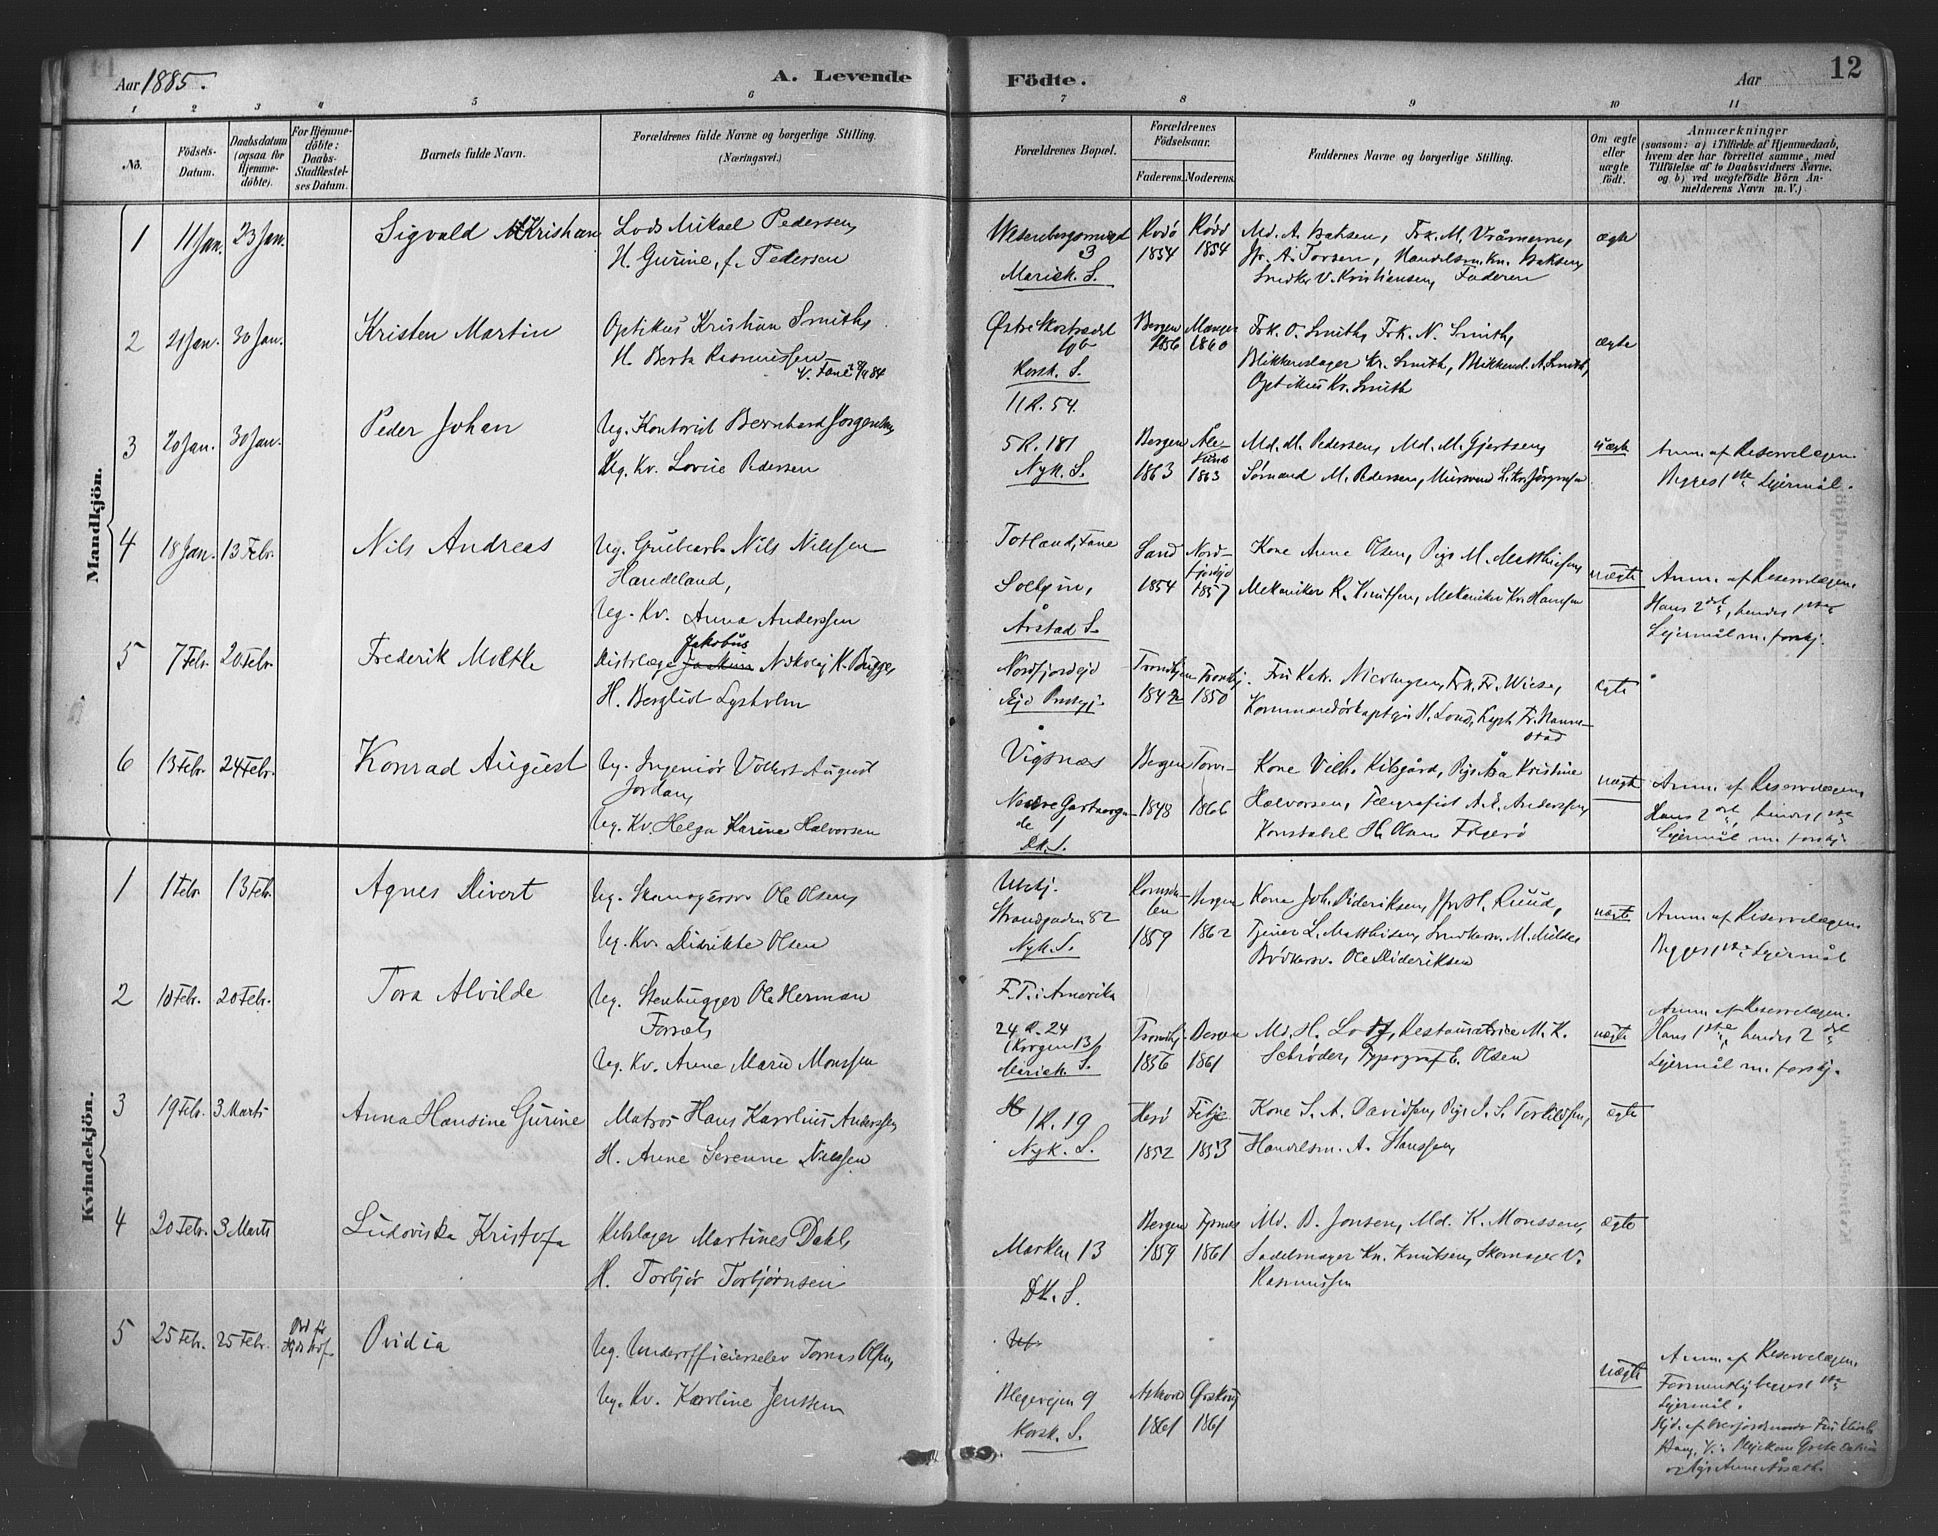 Aar 1885.
A. Levende
Födte.
Aar
12
1 2 3 4 5 6 7 8 9 10 11
No.
Födsels-
Datum.
Daabsdatum
(ogsaa för
Hjemme-
döbte).
For Hjemme-
döbte:
Daabs-
Stadfæstel-
ses Datum.
Barnets fulde Navn.
Forældrenes fulde Navne og borgerlige Stilling.
(Næringsvei.)
Forældrenes Bopæl.
Forældrenes
Födselsaar.
Faderens. Moderens.
Faddernes Navne og borgerlige Stilling.
Om ægte
eller
uægte
födt.
Anmærkninger
(saasom: a) i Tilfælde af Hjemmedaab,
hvem der har forrettet samme, med
Tilföielse af to Daabsvidners Navne,
og b) ved uægtefödte Börn An-
melderens Navn m. V.)
Mandkjön.
1 11 Jan. 23 Jan. Sigvald Kristian
Lods Mikael Pedersen,
H. Gurine, f. Pedersen
3
Mariek. S.
Rödö 1854
Rödö 1854
Md. A. Baksen, Frk. M.
Jfr. A. Torsen, Handelsm. Kn. Baksen,
Snedker V. Kristiansen, Faderen
ægte
2 21 Jan. 30 Jan. Kristen Martin
Optikus Kristian Smith,
H. Berta Rasmussen
V. Fane
Korsk. S.
Bergen 1856
Manger 1860
Frk. O. Smith, Frk. N. Smith,
Blikkenslager Kr. Smith, Blikkensl. A. Smith,
Optikus Kr. Smith
ægte
3 20 Jan. 30 Jan. Peder Johan
Ug. Kontorist Bernhard Jörgensen,
Ug. Kv. Lovise Pedersen
11 R. 54.
5 R. 181
Nyk. S.
Bergen 1863
Aalesund 1863
Md. M. Pedersen, Md. M. Gjertsen,
Sömand M. Pedersen, Mursvend L. Kr. Jörgensen
uægte
Anm. af Reservelægen.
Begges 1ste Lejermål.
4 18 Jan. 13 Febr. Nils Andreas
Ug. Grubearb. Nils Nilssen
Handeland,
Ug. Kv. Anna Anderssen
Totland, Fane
Solhjem,
Årstad S.
Sand 1854
Nordfjordejd 1857
Kone Anne Olsen, Pige M. Matthiesen,
Mekaniker R. Knutsen, Mekaniker Kr. Hansen
uægte
Anm. af Reservelægen.
Hans 2det, hendes 1ste
Lejermål m. forskj.
5 7 Febr. 20 Febr. Frederik Moltke
Distrlæge Jakobus Nikolaj K. Bugge,
H. Bergliot Lysholm
Nordfjordejd
Ejd Prstgj.
Trondhjem 1842
Trondhj. 1850
Fru Katr. Nicolaysen, Frk. Fr. Wiese,
Kommandörkaptejn H. Lous, Kapt. Fr. Nanne-
stad
ægte
6 13 Febr. 24 Febr. Konrad August
Ug. Ingeniör Volkert August
Jordan,
Ug. Kv. Helga Karine Halvorsen
Vigsnæs
Nedre Gartnerga-
de 1
Dk. S.
Bergen 1848
1866
Kone Vilh. Kibsgård, Pige Åsa Kristine
Halvorsen, Telegrafist A. E. Anderssen,
Konstabel H. Olsen Fageró
uægte
Anm. af Reservelægen,
Hans 2det, hendes 1ste
Lejermål m. forskj.
Kvindekjön.
1 1 Febr. 13 Febr. Agnes Divert
Ug. Skomagersv. Ole Olsen,
Ug. Kv. Didrikke Olsen
Ubekj.
Strandgaden 82
Nyk. S.
Romsdalen 1859
Bergen 1862
Kone Joh. Dideriksen, Jfr. H. Ruud,
Tjener L. Matthisen, Snedkersv. M. Milde,
Bödkersv. Ole Dideriksen
uægte
Anm. af Reservelægen.
Begges 1ste Lejermål
2 10 Febr. 20 Febr. Tora Alvilde
Ug. Stenhugger Ole Herman
Ug. Kv. Anne Marie Monssen
F. T. i Amerika
24 R. 24
Mariek. S.
Trondhj. 1856
1861
Md. H. Restauratrice M. K.
Schröder, Typograf E. Olsen
uægte
Anm. af Reservelægen.
Hans 1ste, hendes 2det
Lejermål m. forskj.
3 19 Febr. 3 Marts Anna Hansine Gurine
Matros Hans Karolius Anderssen,
H. Anne Serenne Nilssen
1 R. 19
Nyk. S.
Herö 1852
Fedje 1853
Kone S. A. Davidsen, Pige J. S. Torkildsen,
Handelsm. A. Hanssen,
ægte
4 20 Febr. 3 Marts Ludoviska Kristofa
Rebslager Martines Dahl,
H. Torbjör Torbjörnsen
Marken 13
Dk. S.
Bergen 1859
Tysnes 1861
Md. B. Jonsen, Md. K. Monssen,
Sadelmager Kn. Knutsen, Skomager V.
Rasmussen
ægte
5 25 Febr. 25 Febr. Ovidia
Ug. Underofficerselev Tomas Olsen,
Ug. Kv. Karoline Jenssen
Blegevejen 9
Korsk. S.
Askvold 1861
Örskog 1861
uægte
Anm. af Reservelægen.
Lejermål.